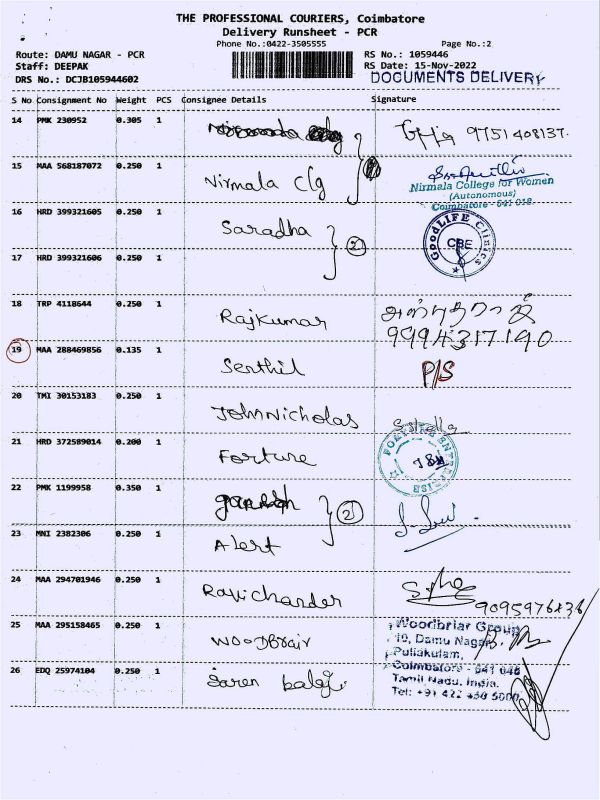 THE PROFESSIONAL COURIERS, Coimbatore
Delivery Runsheet - PCR
Phone No.:0422-3505555 Page No.:2
Route: DAMU NAGAR - PCR RS No.: 1059446
Staff: DEEPAK RS Date: 15-Nov-2022
DRS No.: DCJB105944602 DOCUMENTS DELIVERY
S No Consignment No Weight PCS Consignee Details Signature
14 PMK 230952 0.305 1 9751408137.
15 MAA 568187072 0.250 1 Nirmala Clg
Nirmala College for Women
(Autonomous)
Coimbatore - 641 018.
16 HRD 399321605 0.250 1 Saradha 2
GOODLIFE Clinics
CBE
17 HRD 399321606 0.250 1
18 TRP 4118644 0.250 1 Rajkumar
9994317190
19 MAA 288469856 0.135 1 Senthil P/S
20 TMI 30153183 0.250 1 John Nicholas Stella
21 HRD 372589014 0.200 1 Forture
22 PMK 1199958 0.350 1 ganesh 2
23 MNI 2382306 0.250 1 Alert
24 MAA 294701946 0.250 1 Ravichander
25 MAA 295158465 0.250 1 WOODBrair
Woodbriar Group
10, Damu Nagar,
Puliakulam,
Coimbatore - 641 045
Tamil Nadu, India.
26 EDQ 25974104 0.250 1